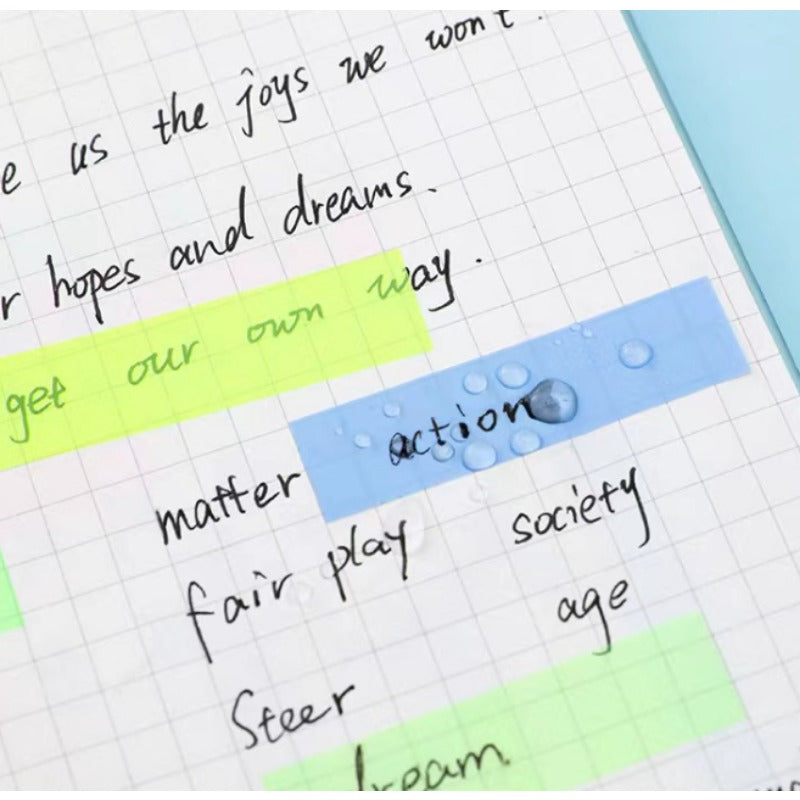 us the joys we won't
hopes and dreams.
get our own way.
matter action
fair play society
age
Steer
dream